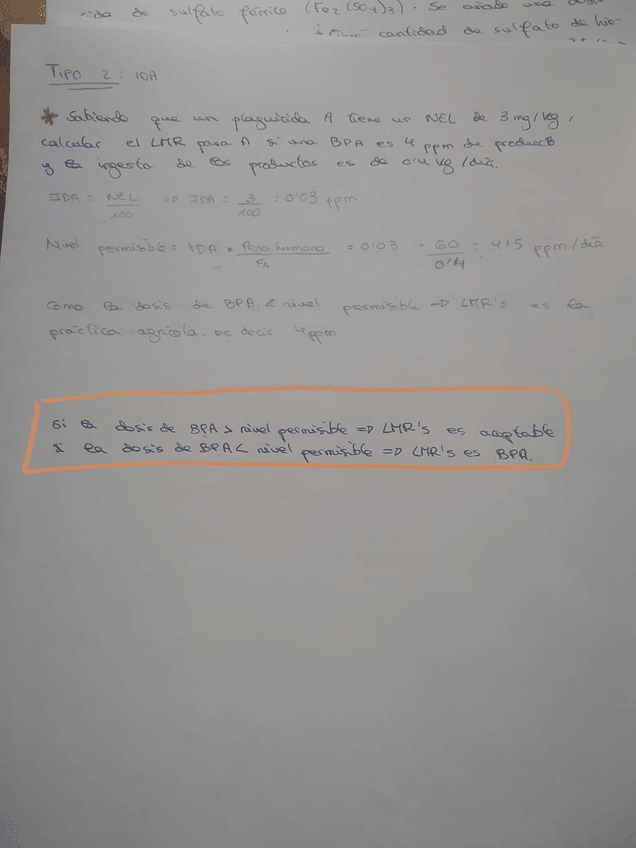 nida de sulfato férrico (Fe2(SO4)3). Se añade una
cantidad de sulfato de hie-
TIPO 2: IDA
* Sabiendo que un plaguicida A tiene un NEL de 3 mg/kg,
calcular el LMR para A si una BPA es 4 ppm de producto
y la ingesta de los productos es de 0'4 kg/día.
IDA = NEL/100 => IDA = 3/100 = 0'03 ppm
Nivel permisible = IDA * Peso humano/FA = 0'03 · 60/0'4 = 4'5 ppm/día
Como la dosis de BPA < nivel permisible => LMR's es la
práctica agrícola, es decir 4ppm
Si la dosis de BPA > nivel permisible => LMR's es aceptable
Si la dosis de BPA < nivel permisible => LMR's es BPA.